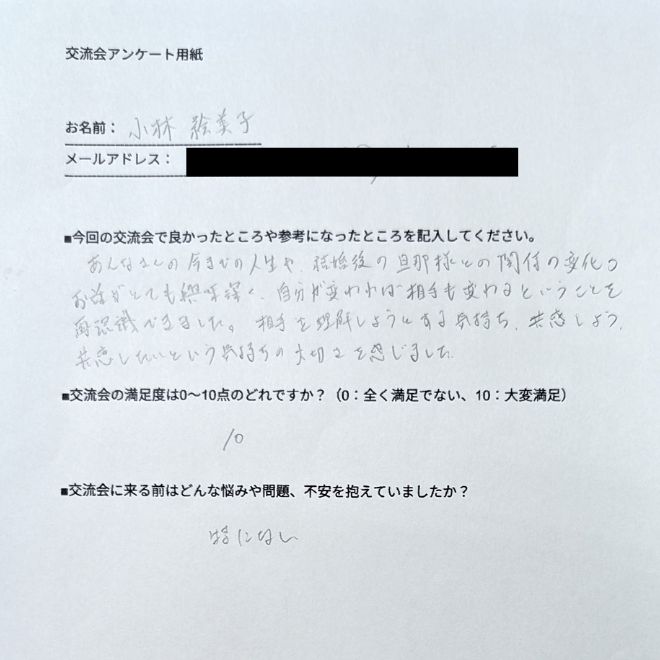 交流会アンケート用紙
お名前： 小林 絵美子
メールアドレス：
■今回の交流会で良かったところや参考になったところを記入してください。
あんなさんの今までの人生や、結婚後の旦那様との関係の変化の
お話がとても興味深く、自分が変われば相手も変わるということを
再認識できました。 相手を理解しようとする気持ち、共感しよう、
共感したいという気持ちの大切さを感じました
■交流会の満足度は0〜10点のどれですか？（0：全く満足でない、10：大変満足）
10
■交流会に来る前はどんな悩みや問題、不安を抱えていましたか？
特になし